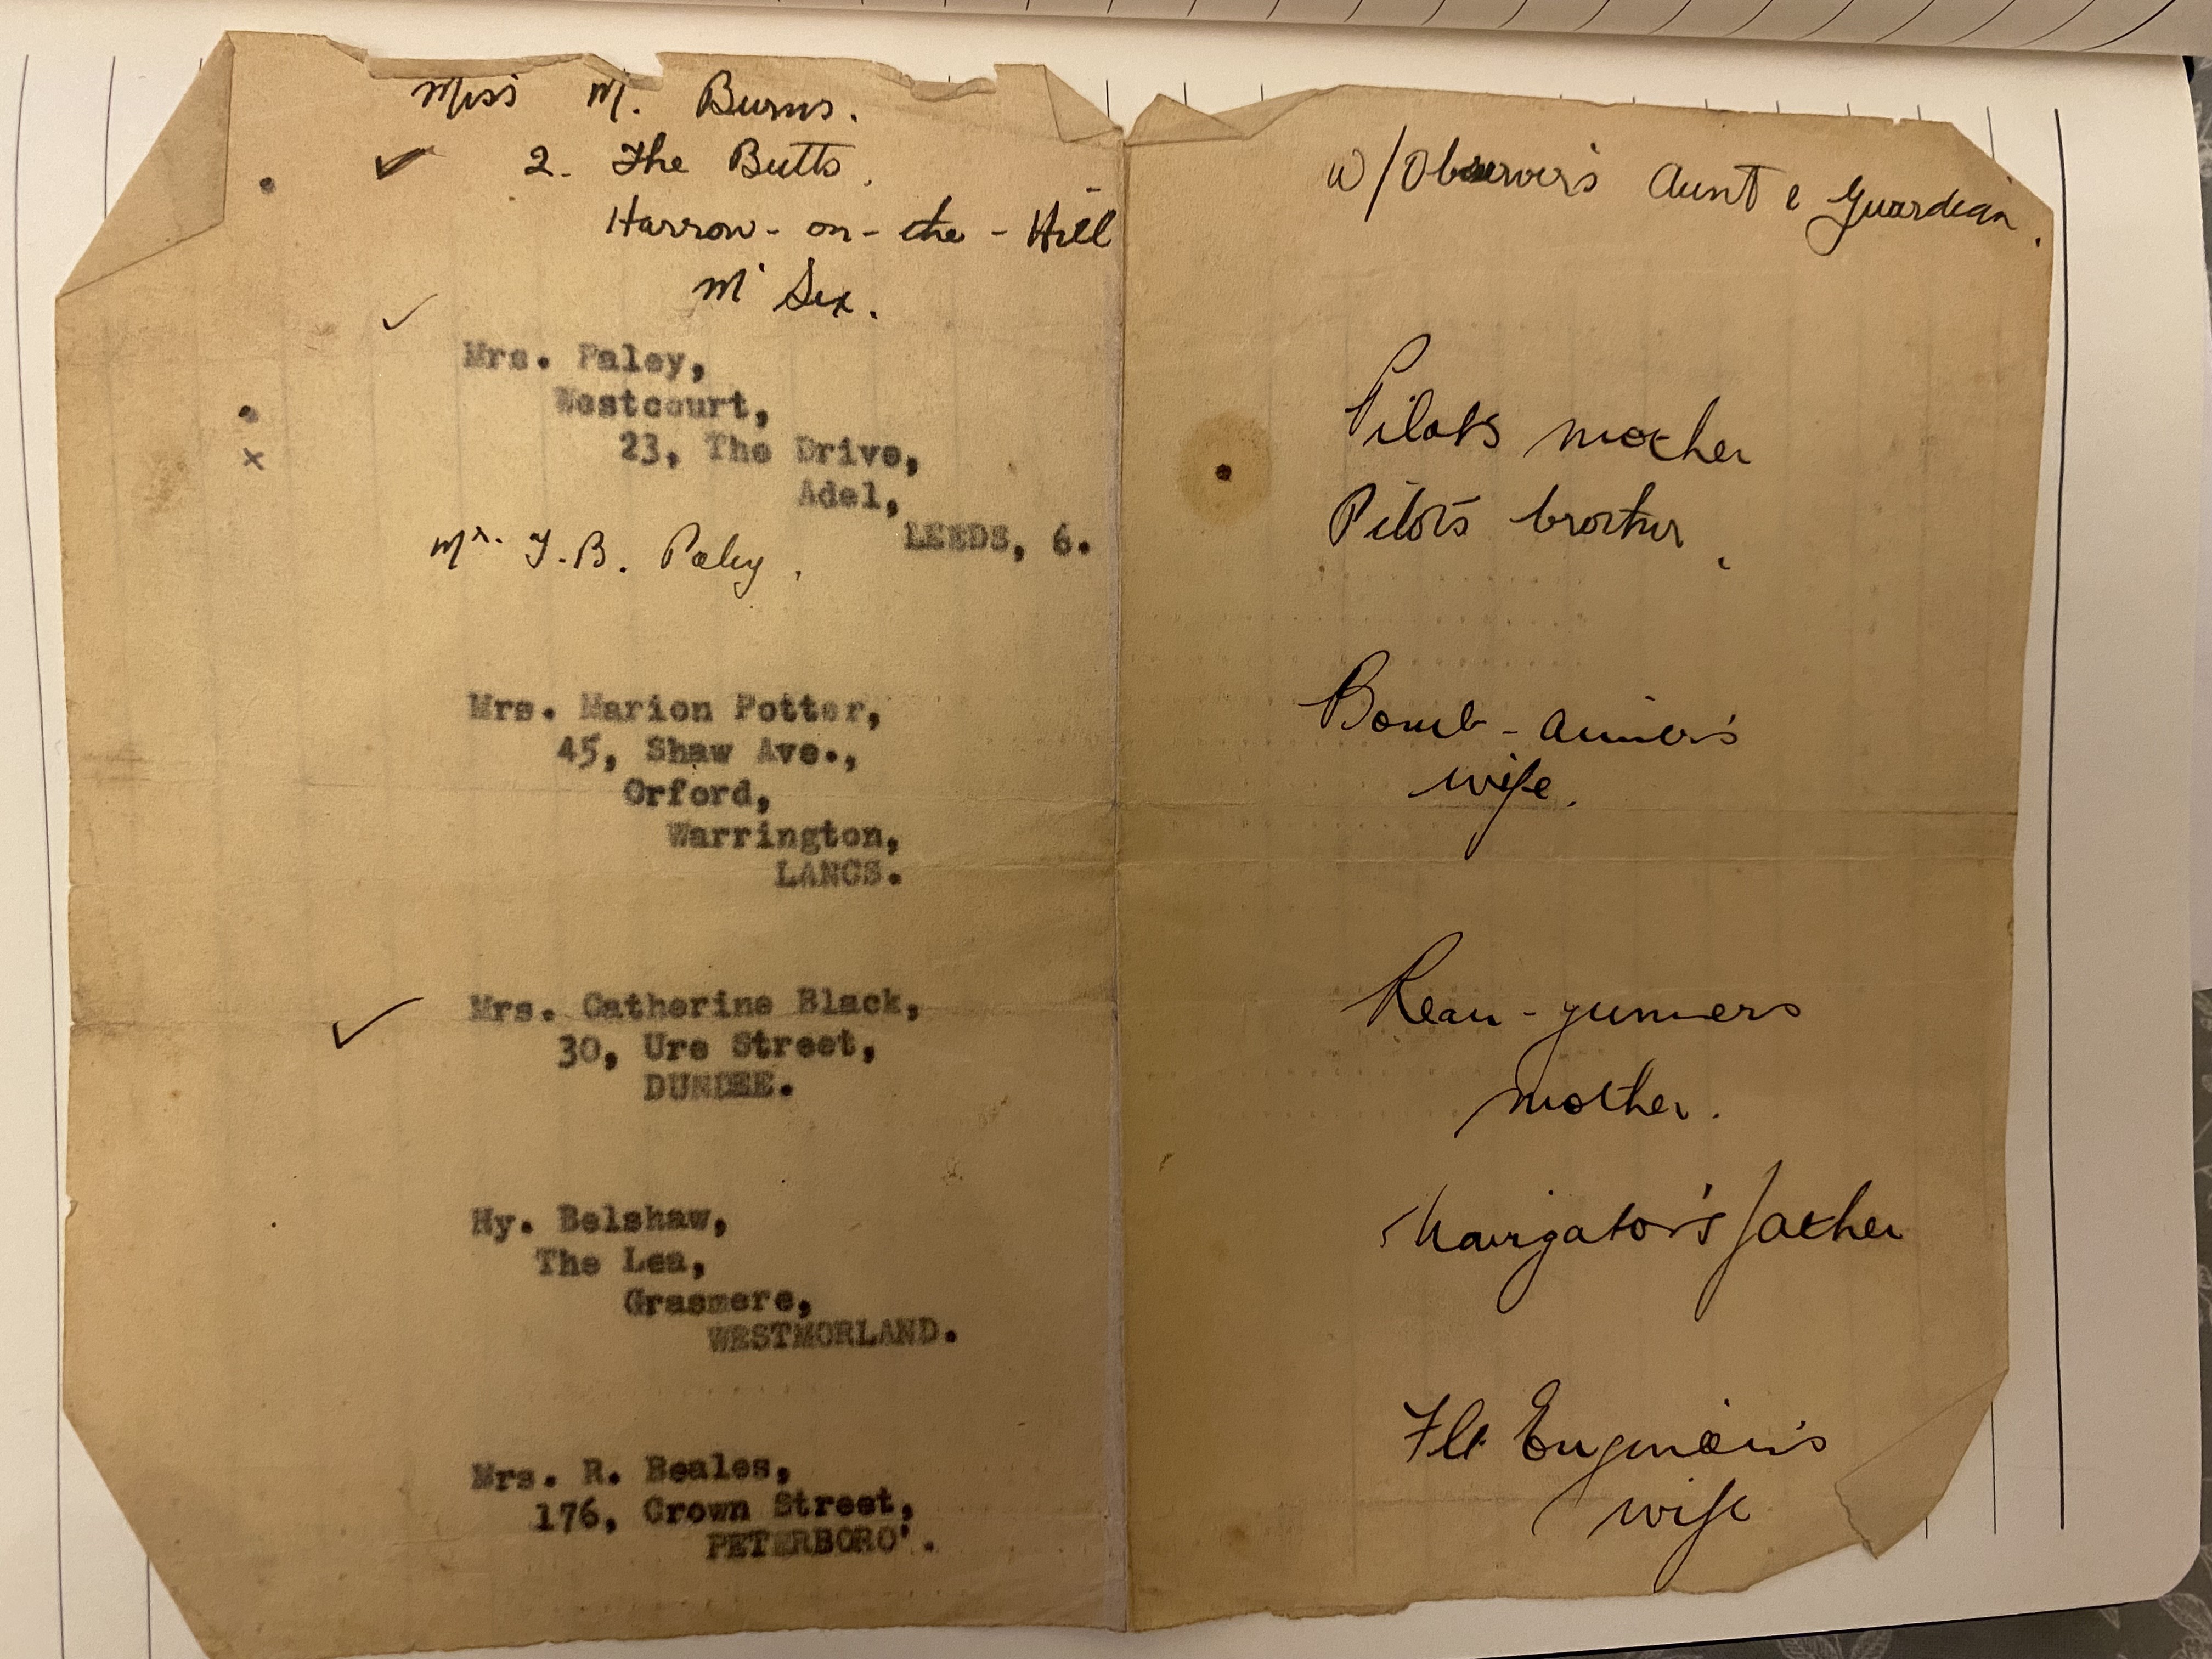 Miss M. Burns.
2. The Butts.
Harrow-on-the-Hill
M'Sex.
W/Observer's Aunt & Guardian.
Mrs. Paley,
Westcourt,
23, The Drive,
Adel,
LEEDS, 6.
Pilots mother
Mr. J.B. Paley.
Pilot's brother.
Mrs. Marion Potter,
45, Shaw Ave.,
Orford,
Warrington,
LANCS.
Bomb-aimer's
wife.
Mrs. Catherine Black,
30, Ure Street,
DUNDEE.
Rear-gunners
mother.
Hy. Belshaw,
The Lea,
Grasmere,
WESTMORLAND.
Navigator's father
Mrs. R. Beales,
176, Crown Street,
PETERBORO'.
Flt Engineer's
wife